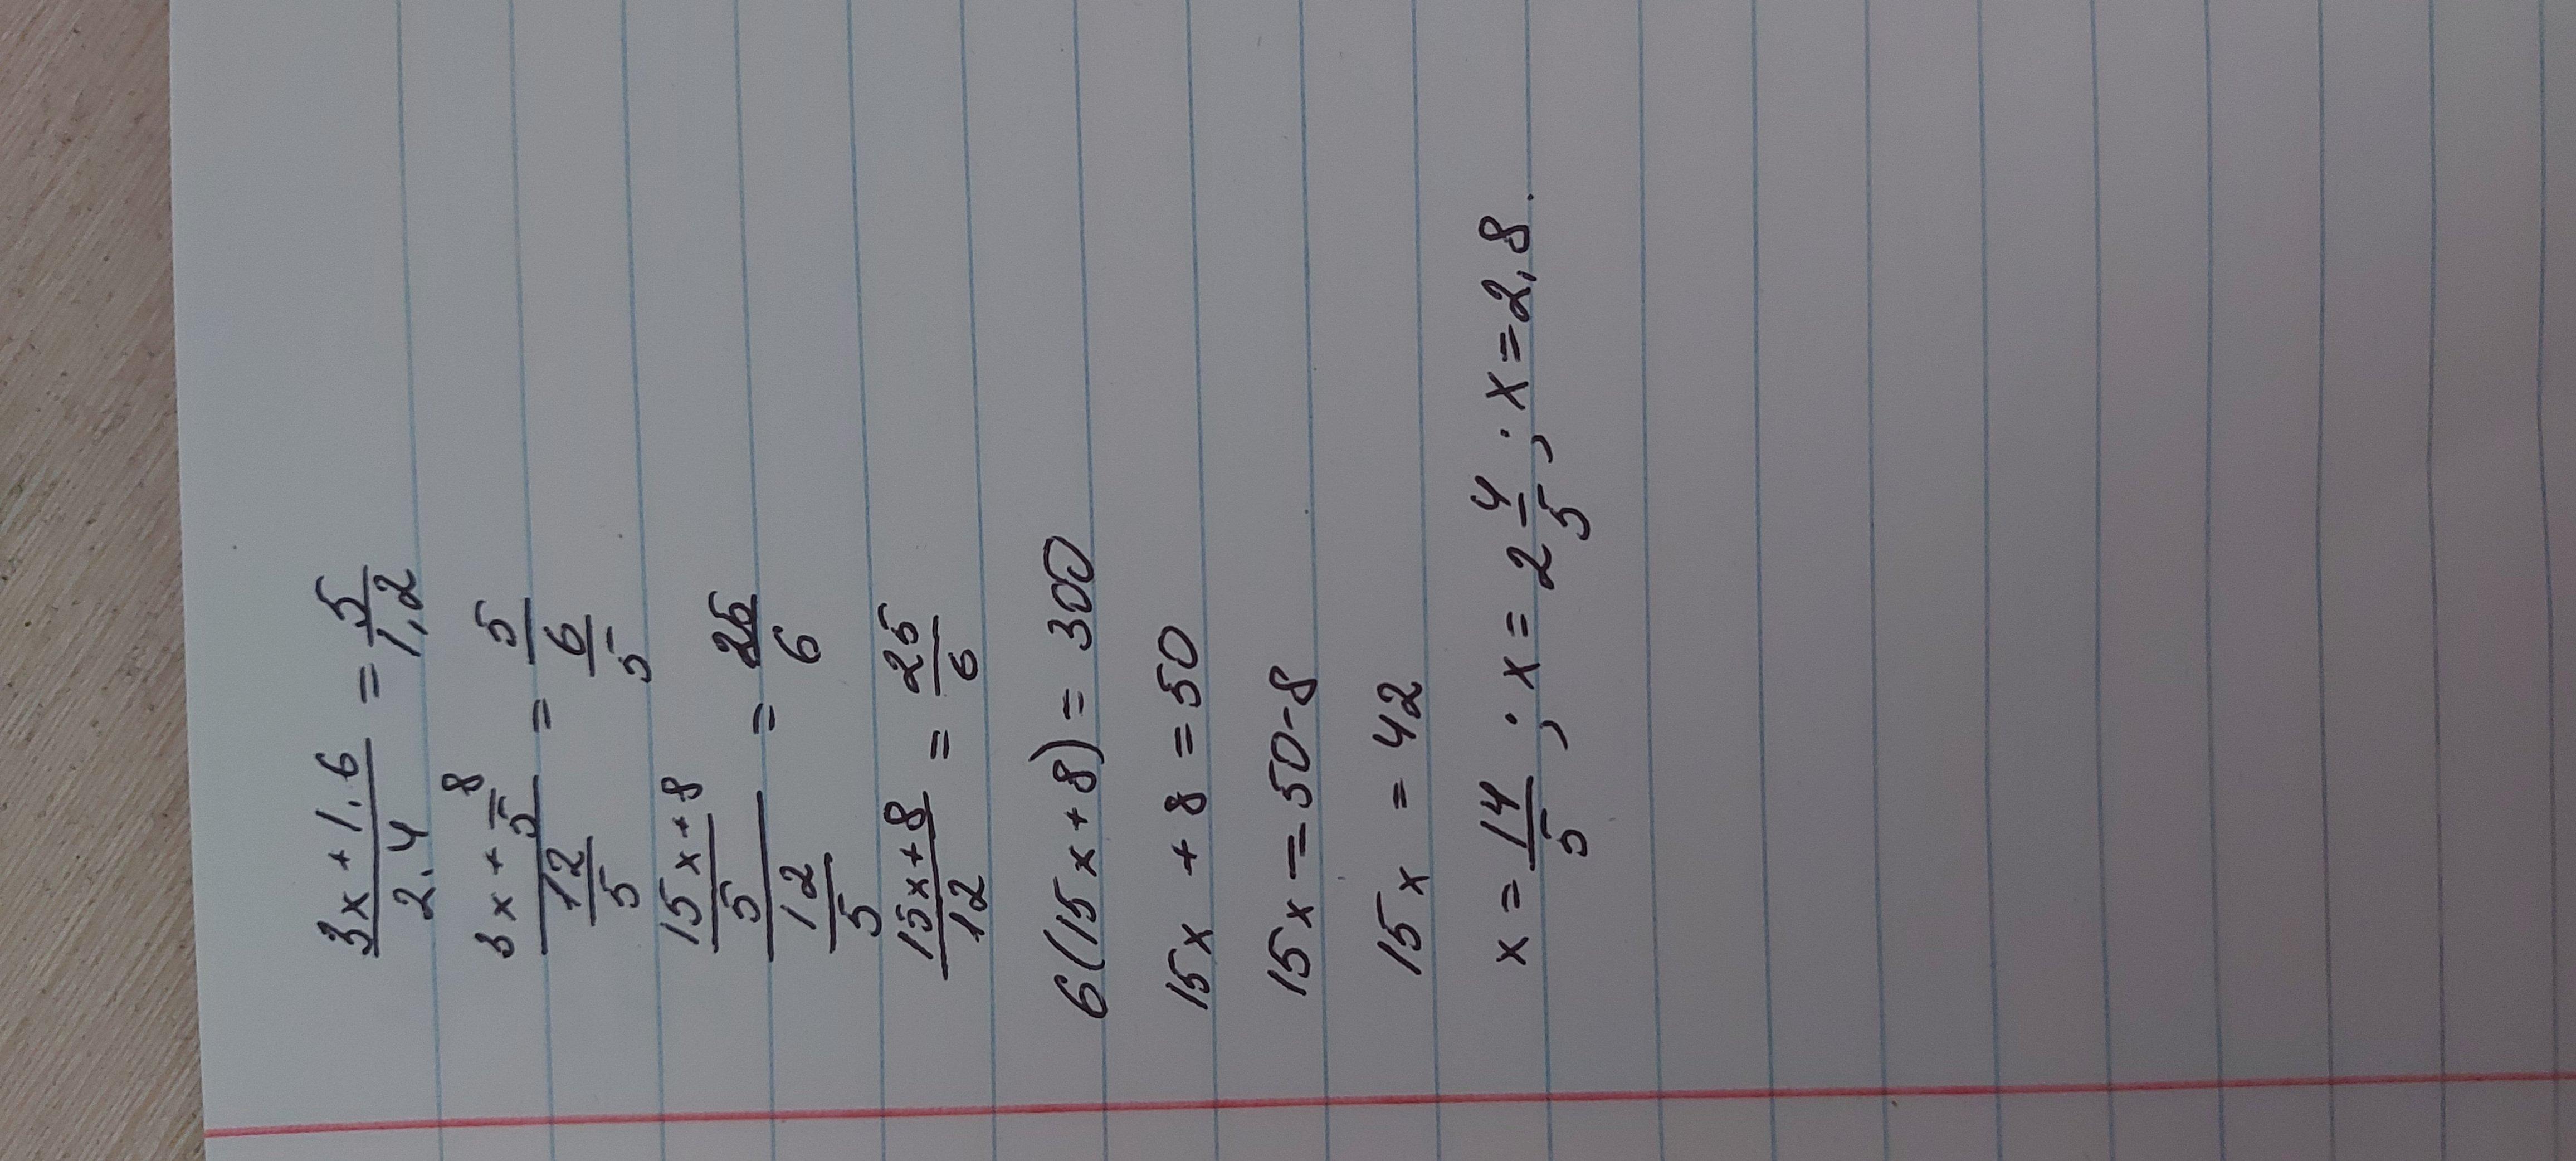 (3x + 1.6)/2.4 = 5/1,2
(3x + 8/5)/(12/5) = 5/(6/5)
((15x + 8)/5)/(12/5) = 25/6
(15x + 8)/12 = 25/6
6(15x + 8) = 300
15x + 8 = 50
15x = 50 - 8
15x = 42
x = 14/5 ; x = 2 4/5 ; x = 2,8.